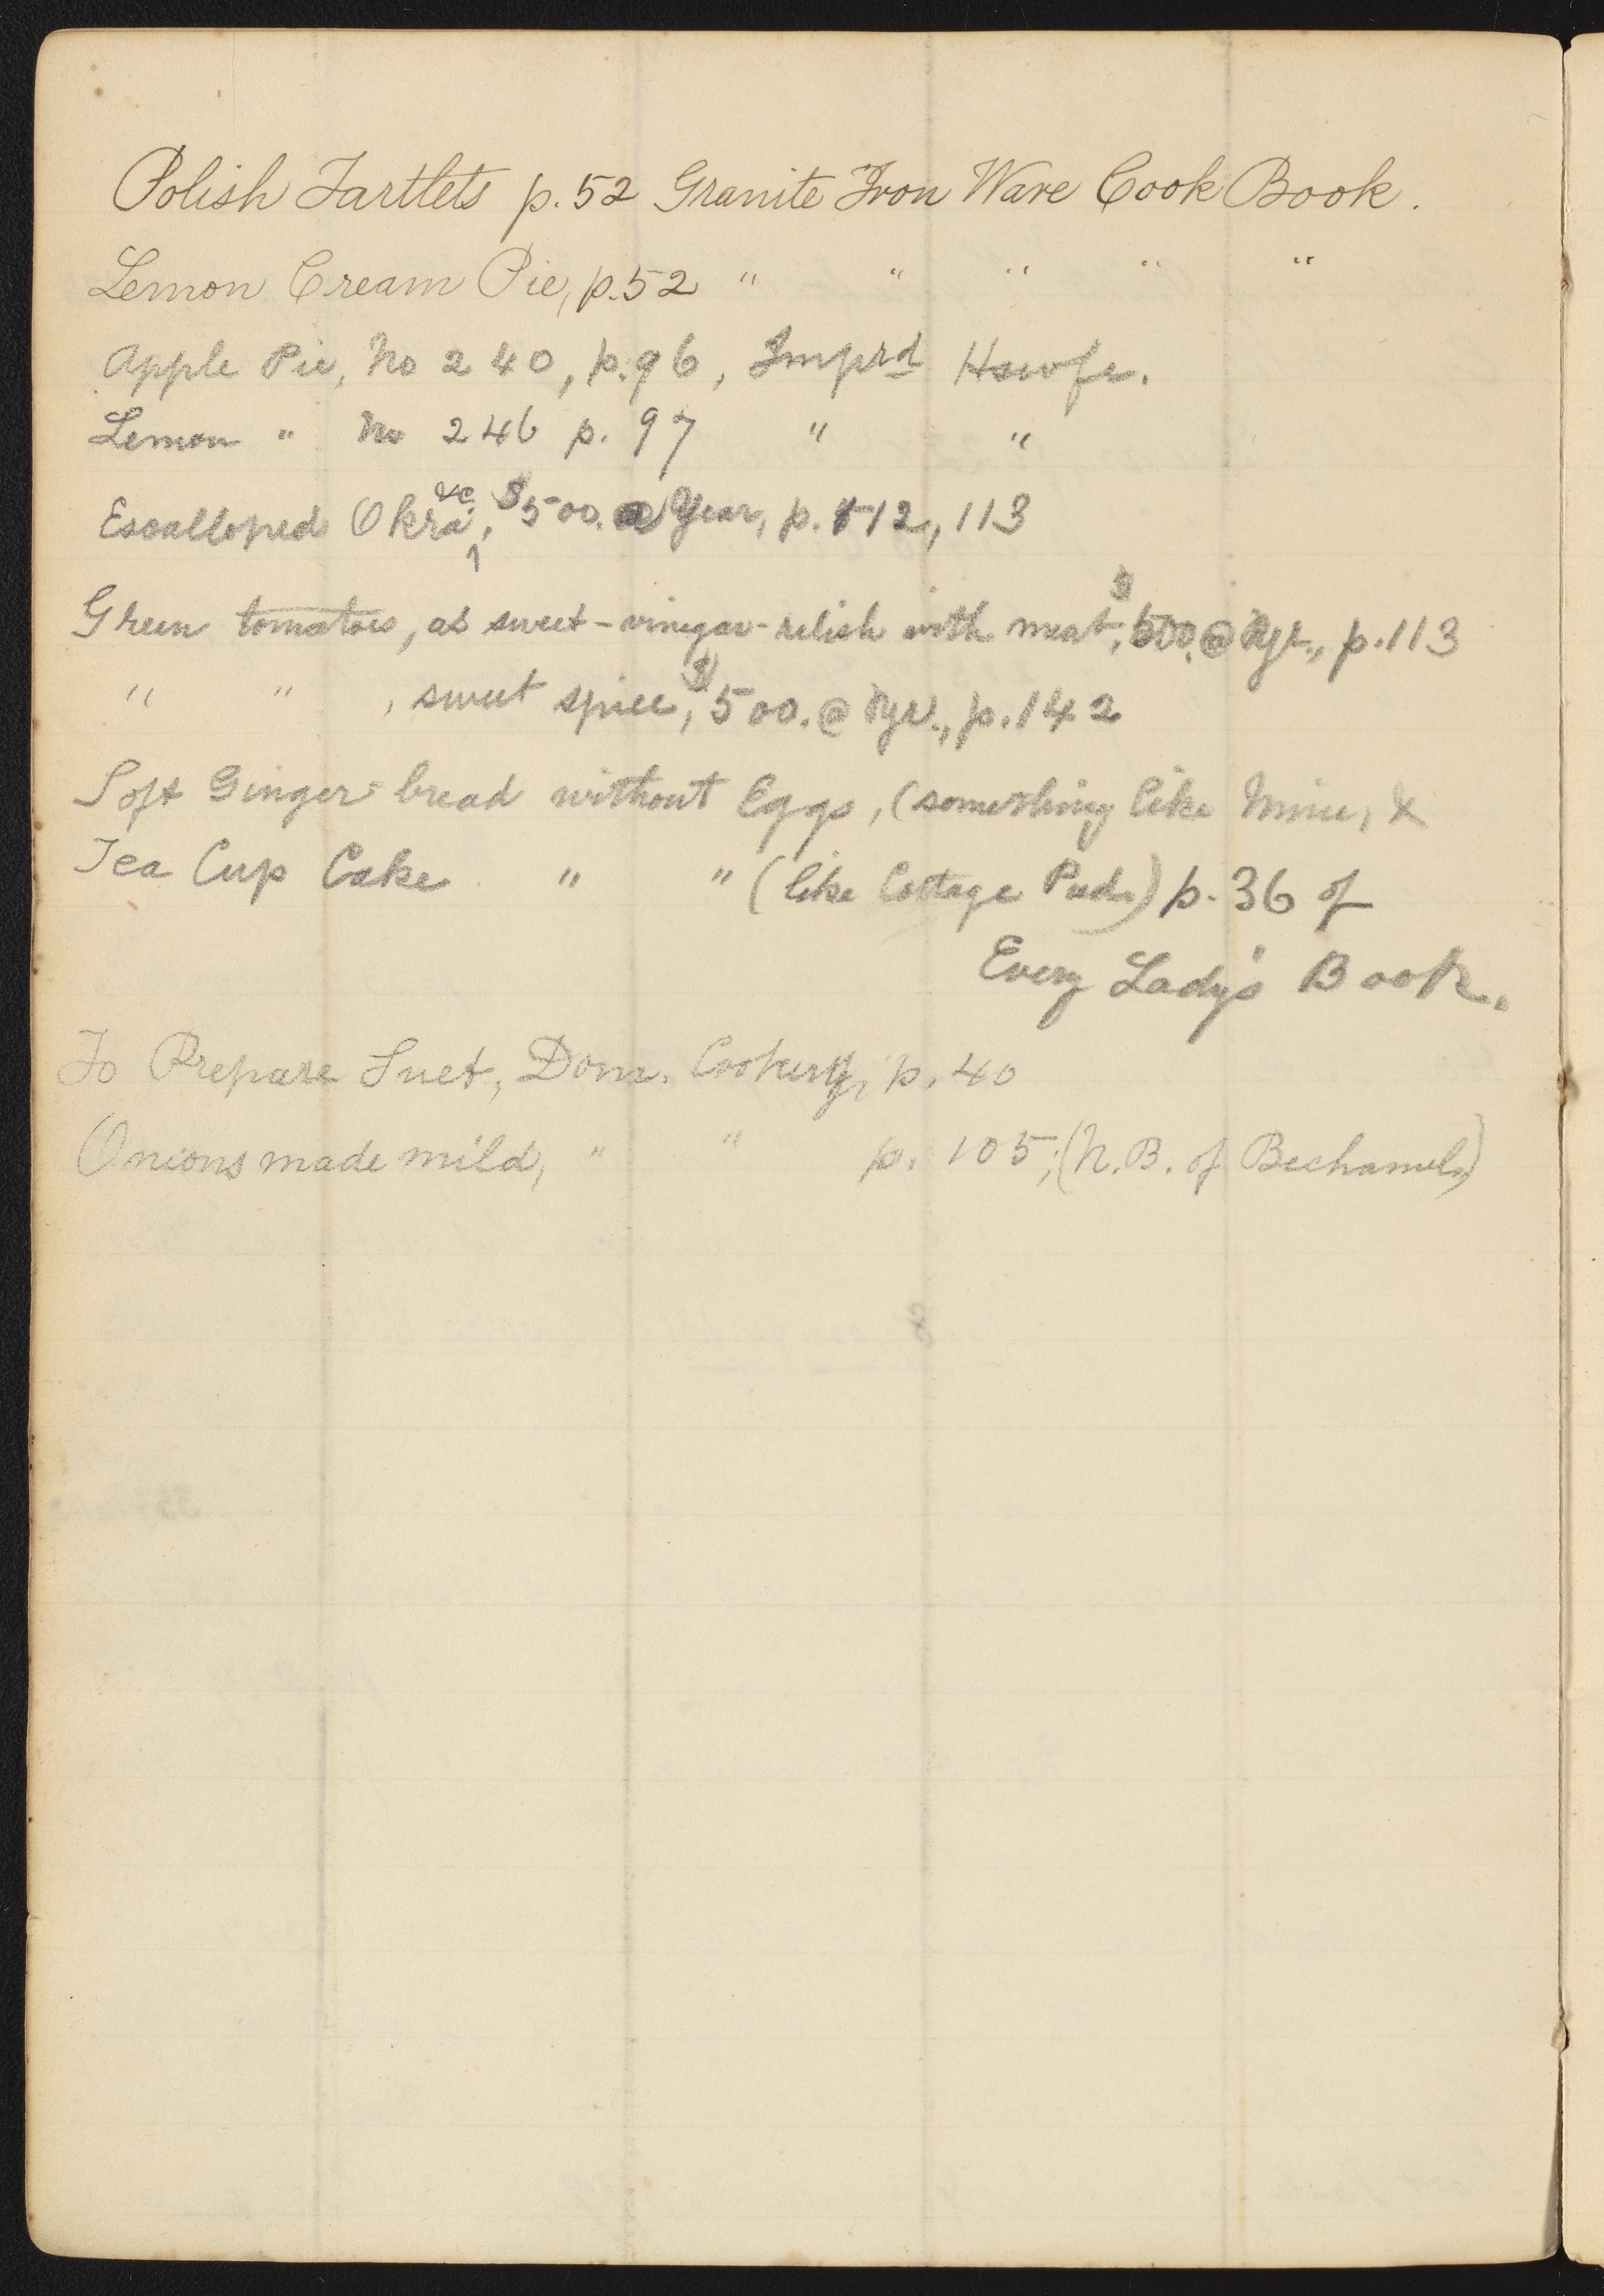 Polish Tartlets p. 52 Granite Iron Ware Cook Book.
Lemon Cream Pie, p. 52 " " " " "
Apple Pie, No 240, p. 96, Imprd Hswfe.
Lemon " No 246 p. 97 " "
Escalloped Okra &c, $500. a Year, p. 112, 113
Green tomatoes, as sweet-vinegar-relish with meat, $500. @ Yr., p. 113
" " , sweet spice, $500. @ Yr., p. 142
Soft Ginger-bread without Eggs, (something like Mine, &
Tea Cup Cake " " (like Cottage Pud.) p. 36 of
Every Lady's Book.
To Prepare Suet, Dom. Cookery, p. 40
Onions made mild, " " p. 105, (N.B. of Bechamel)